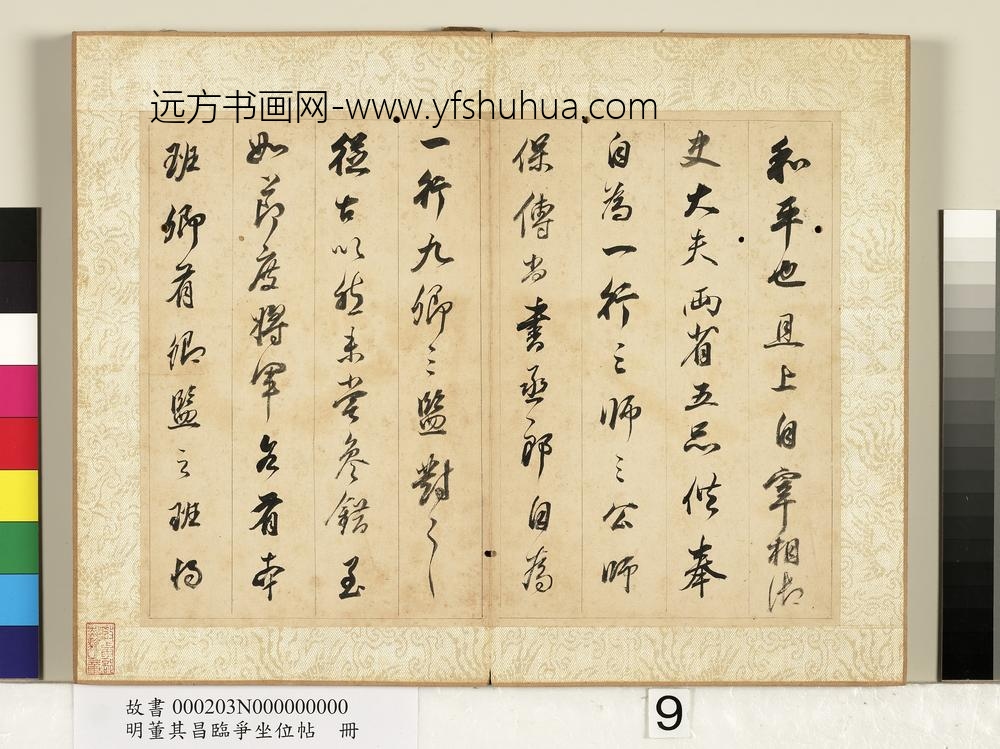 远方书画网-www.yfshuhua.com
和平也且上自宰相御
史大夫两省五品供奉
自為一行三師三公師
保傅尚書丞郎自為
一行九卿三監對之
從古以然未嘗參錯至
如節度將軍各有本
班卿有卿監之班將
故書 000203N000000000
明董其昌臨爭坐位帖 冊
9